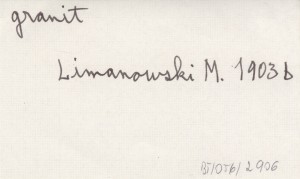 granit
Limanowski M. 1903 b
BJ/OTb/2906